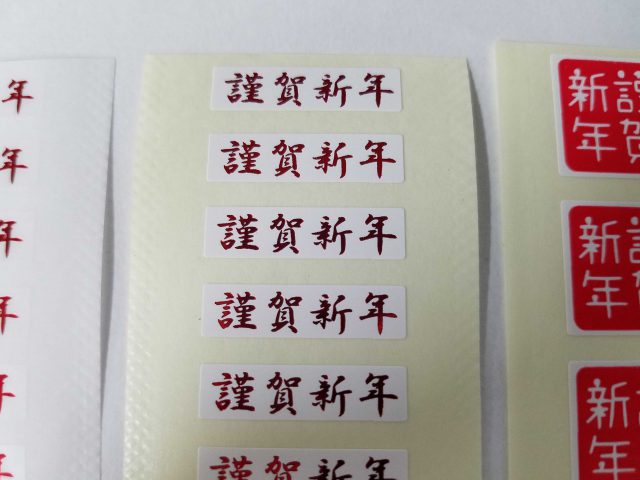 年
年
年
年
年
謹賀新年
謹賀新年
謹賀新年
謹賀新年
謹賀新年
謹賀新年
謹賀
新年
謹賀
新年
新
年